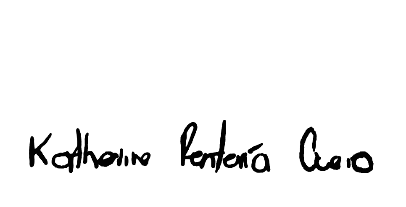 Katherine Rentería Cuero